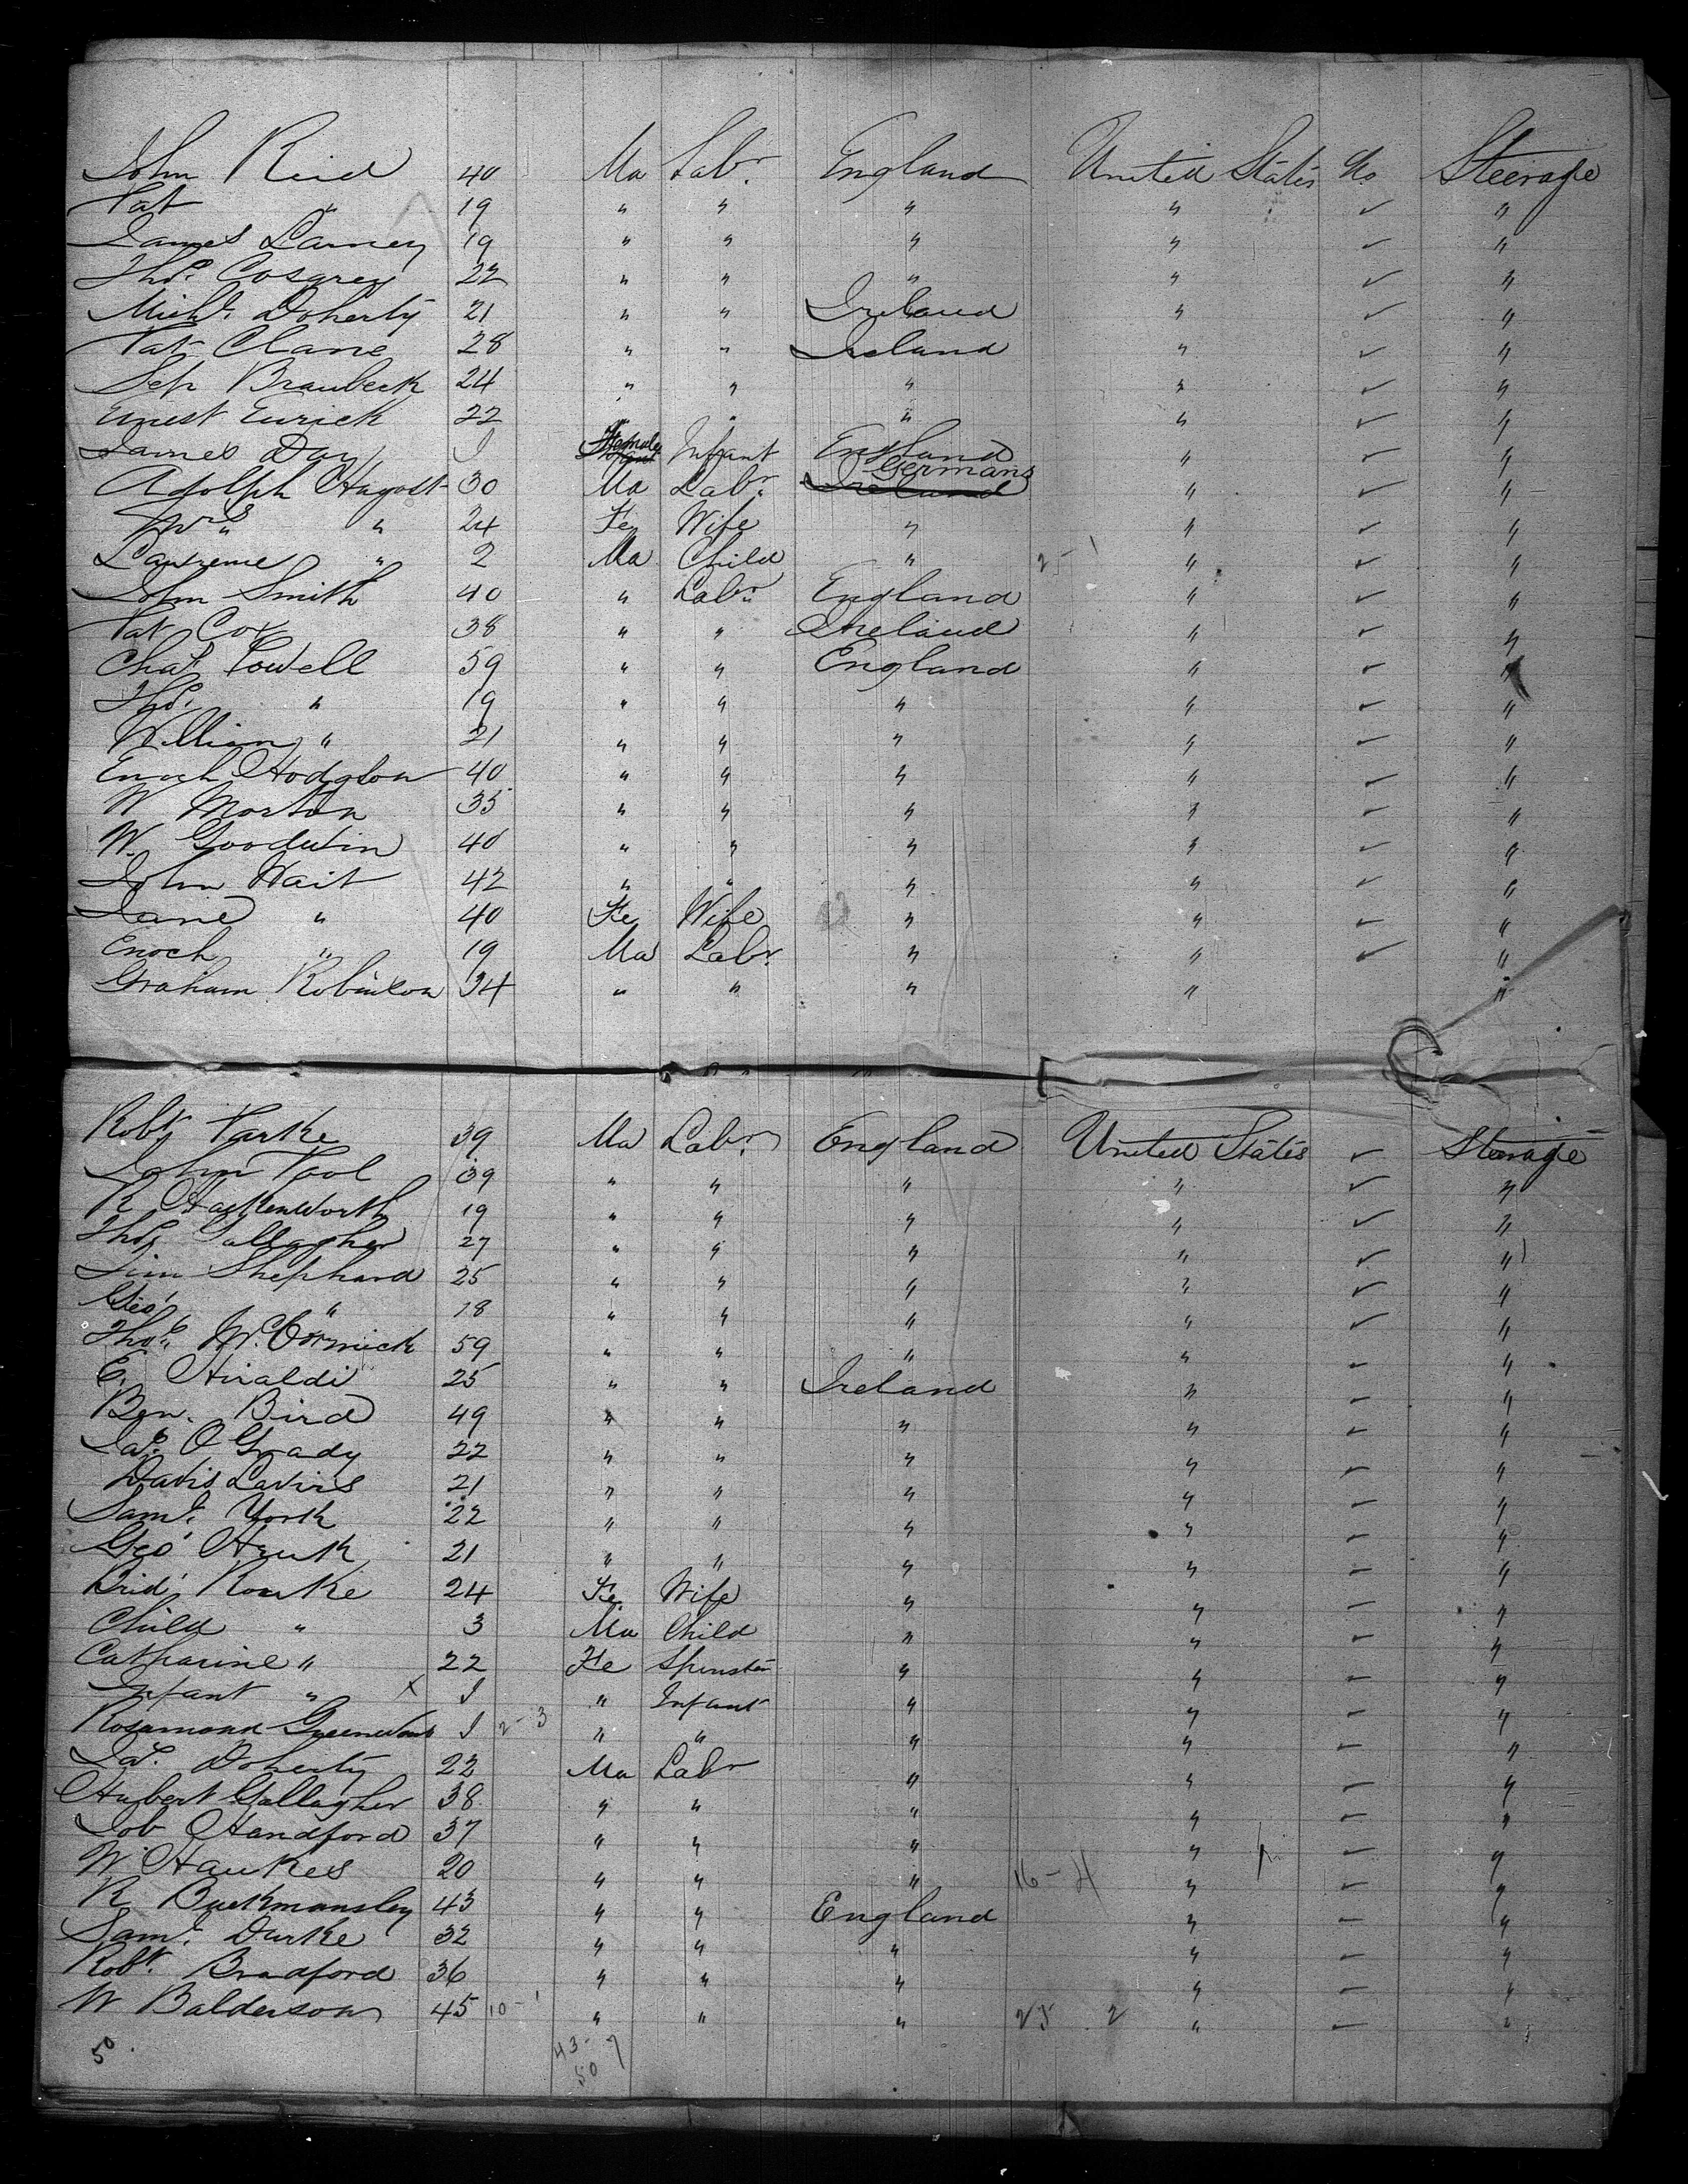 John Reid 40 Ma Labr. England United States No Steerage
Pat " 19 " " " " ✓ "
James Larney 19 " " " " ✓ "
Thos. Cosgrey 22 " " " " ✓ "
Michl. Doherty 21 " " Ireland " ✓ "
Pat Clane 28 " " Ireland " ✓ "
Sep Braubeck 24 " " " " ✓ "
Ernest Eurick 22 " " " " ✓ "
James Day I Infant England " ✓ "
Germans
Adolph Hagost 30 Ma Labr. Ireland " ✓ "
Mrs " " 24 Fe Wife " " ✓ "
Lawrence " 2 Ma Child " 2 - 1 " ✓ "
John Smith 40 " Labr. England " ✓ "
Pat Cox 38 " " Ireland " ✓ "
Chas. Powell 59 " " England " ✓ "
Thos. " 19 " " " " ✓ "
William " 21 " " " " ✓ "
Enoch Hodgson 40 " " " " ✓ "
W. Morton 35 " " " " ✓ "
W. Goodwin 40 " " " " ✓ "
John Wait 42 " " " " ✓ "
Jane " 40 Fe Wife " " ✓ "
Enoch " 19 Ma Labr. " " ✓ "
Graham Robinson 34 " " " " "
Robt Parke 39 Ma Labr. England United States ✓ Steerage
John Pool 39 " " " " ✓ "
R Hackenworth 19 " " " " ✓ "
Thos Gallagher 27 " " " " ✓ "
Jim Shephard 25 " " " " ✓ "
Geo. " 18 " " " " ✓ "
Thos. McCormick 59 " " " " ✓ "
E. Hiraldi 25 " " Ireland " ✓ "
Ben. Bird 49 " " " " ✓ "
Jas. O Grady 22 " " " " ✓ "
Davis Laviris 21 " " " " ✓ "
Saml. York 22 " " " " ✓ "
Geo. Hauk 21 " " " " ✓ "
Brid. Rourke 24 Fe. Wife " " ✓ "
Child " 3 Ma Child " " ✓ "
Catharine " 22 Fe Spinster " " ✓ "
Infant " x I " Infant " " ✓ "
Rosamond I 2 - 3 " " " " ✓ "
Jas. Doherty 22 Ma Labr " " ✓ "
Hubert Gallagher 38 " " " " ✓ "
Job Handford 37 " " " " ✓ "
W. Haukes 20 " " " 16 - 4 " ✓ "
R Buckmansley 43 " " England " ✓ "
Saml. Durke 32 " " " " ✓ "
Robt. Bradford 36 " " " " ✓ "
W Balderson 45 10 - 1 " " " 25 2 " ✓ "
50. 43 - 7
50